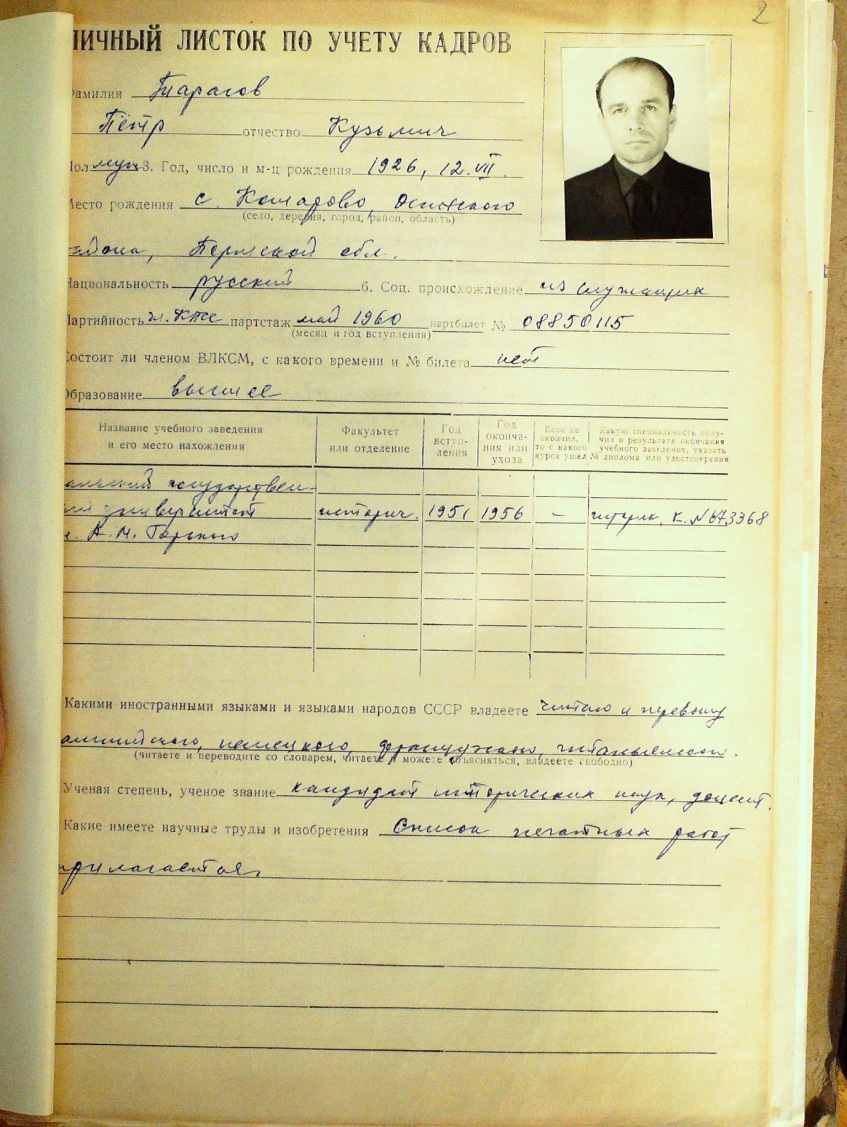 2
ЛИЧНЫЙ ЛИСТОК ПО УЧЕТУ КАДРОВ
Фамилия Тарасов
Пётр отчество Кузьмич
Пол муж 3. Год, число и м-ц рождения 1926, 12.VII.
Место рождения с. Комарово Осинского
(село, деревня, город, район, область)
района, Пермской обл.
Национальность русский 6. Соц. происхождение из служащих
Партийность чл. КПСС партстаж май 1960 партбилет № 08850115
(месяц и год вступления)
Состоит ли членом ВЛКСМ, с какого времени и № билета нет
Образование высшее
Название учебного заведения и его место нахождения
Факультет или отделение
Год вступ- ления
Год оконча- ния или ухода
Если не окончил, то с какого курса ушел
Какую специальность полу- чил в результате окончания учебного заведения, указать № диплома или удостоверения
государствен-
ный университет историч. 1951 1956 — К. № 673368
А. М. Горького
Какими иностранными языками и языками народов СССР владеете читаю и перевожу
английского, немецкого, французского, итальянского.
(читаете и переводите со словарем, читаете и можете объясняться, владеете свободно)
Ученая степень, ученое звание кандидат исторических наук, доцент.
Какие имеете научные труды и изобретения Список печатных работ
прилагается.